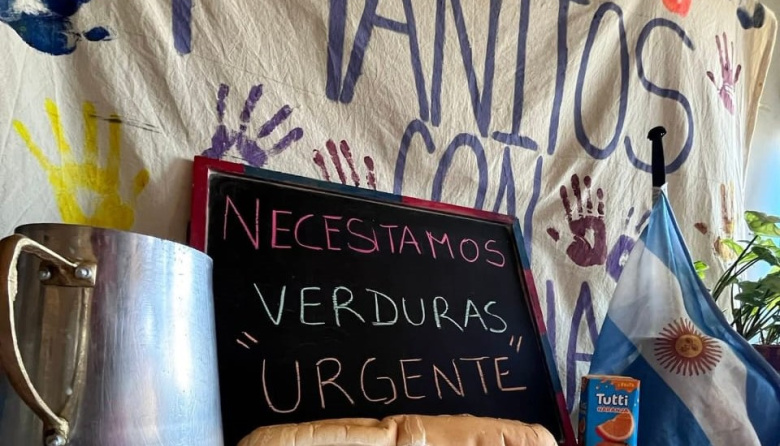 ANITOS
CON
NECESITAMOS
VERDURAS
"URGENTE"
Tutti
NARANJA